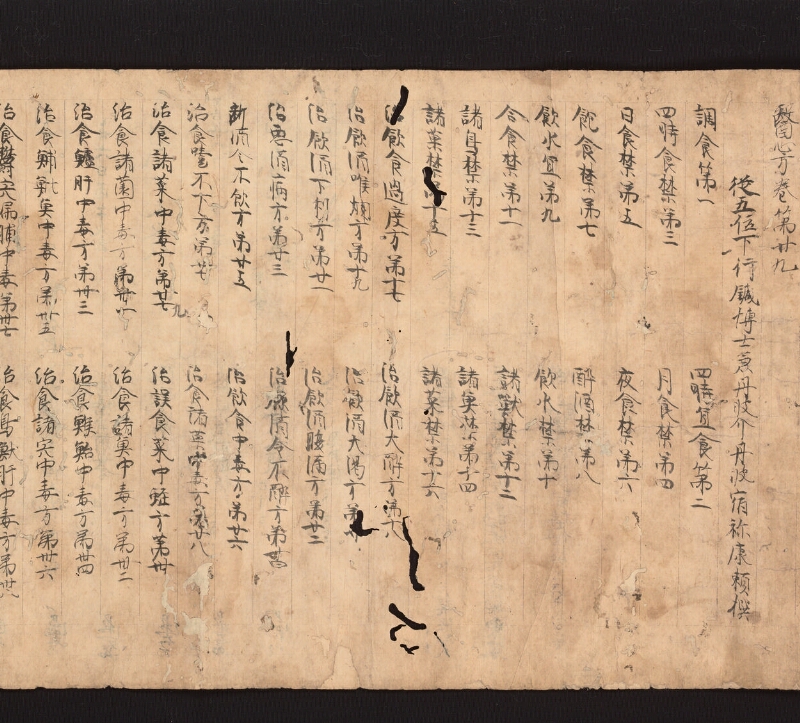 醫心方卷第廿九
從五位下行鍼博士兼丹波介丹波宿祢康頼撰
調食第一 四時宜食第二
四時食禁第三 月食禁第四
日食禁第五 夜食禁第六
飽食禁第七 醉酒禁第八
飲水宜第九 飲水禁第十
合食禁第十一 諸獸禁第十二
諸鳥禁第十三 諸魚禁第十四
諸菓禁第十五 諸菜禁第十六
治飲食過度方第十七 治飲酒大醉方第十八
治飲酒喉爛方第十九 治飲酒大渴方第廿
治飲酒下利方第廿一 治飲酒腹滿方第廿二
治惡酒病方第廿三 治 酒令不醉方第廿四
斷酒令不飲方第廿五 治飲食中毒方第廿六
治食噎不下方第廿七 治食諸果中毒方第廿八
治食諸菜中毒方第廿九 治誤食菜中蛭方第卅
治食諸菌中毒方第卅一 治食諸魚中毒方第卅二
治食鱸肝中毒方第卅三 治食鯸鮐中毒方第卅四
治食 魚中毒方第卅五 治食諸宍中毒方第卅六
治食欝宍漏脯中毒第卅七 治食鳥獸肝中毒方第卅八